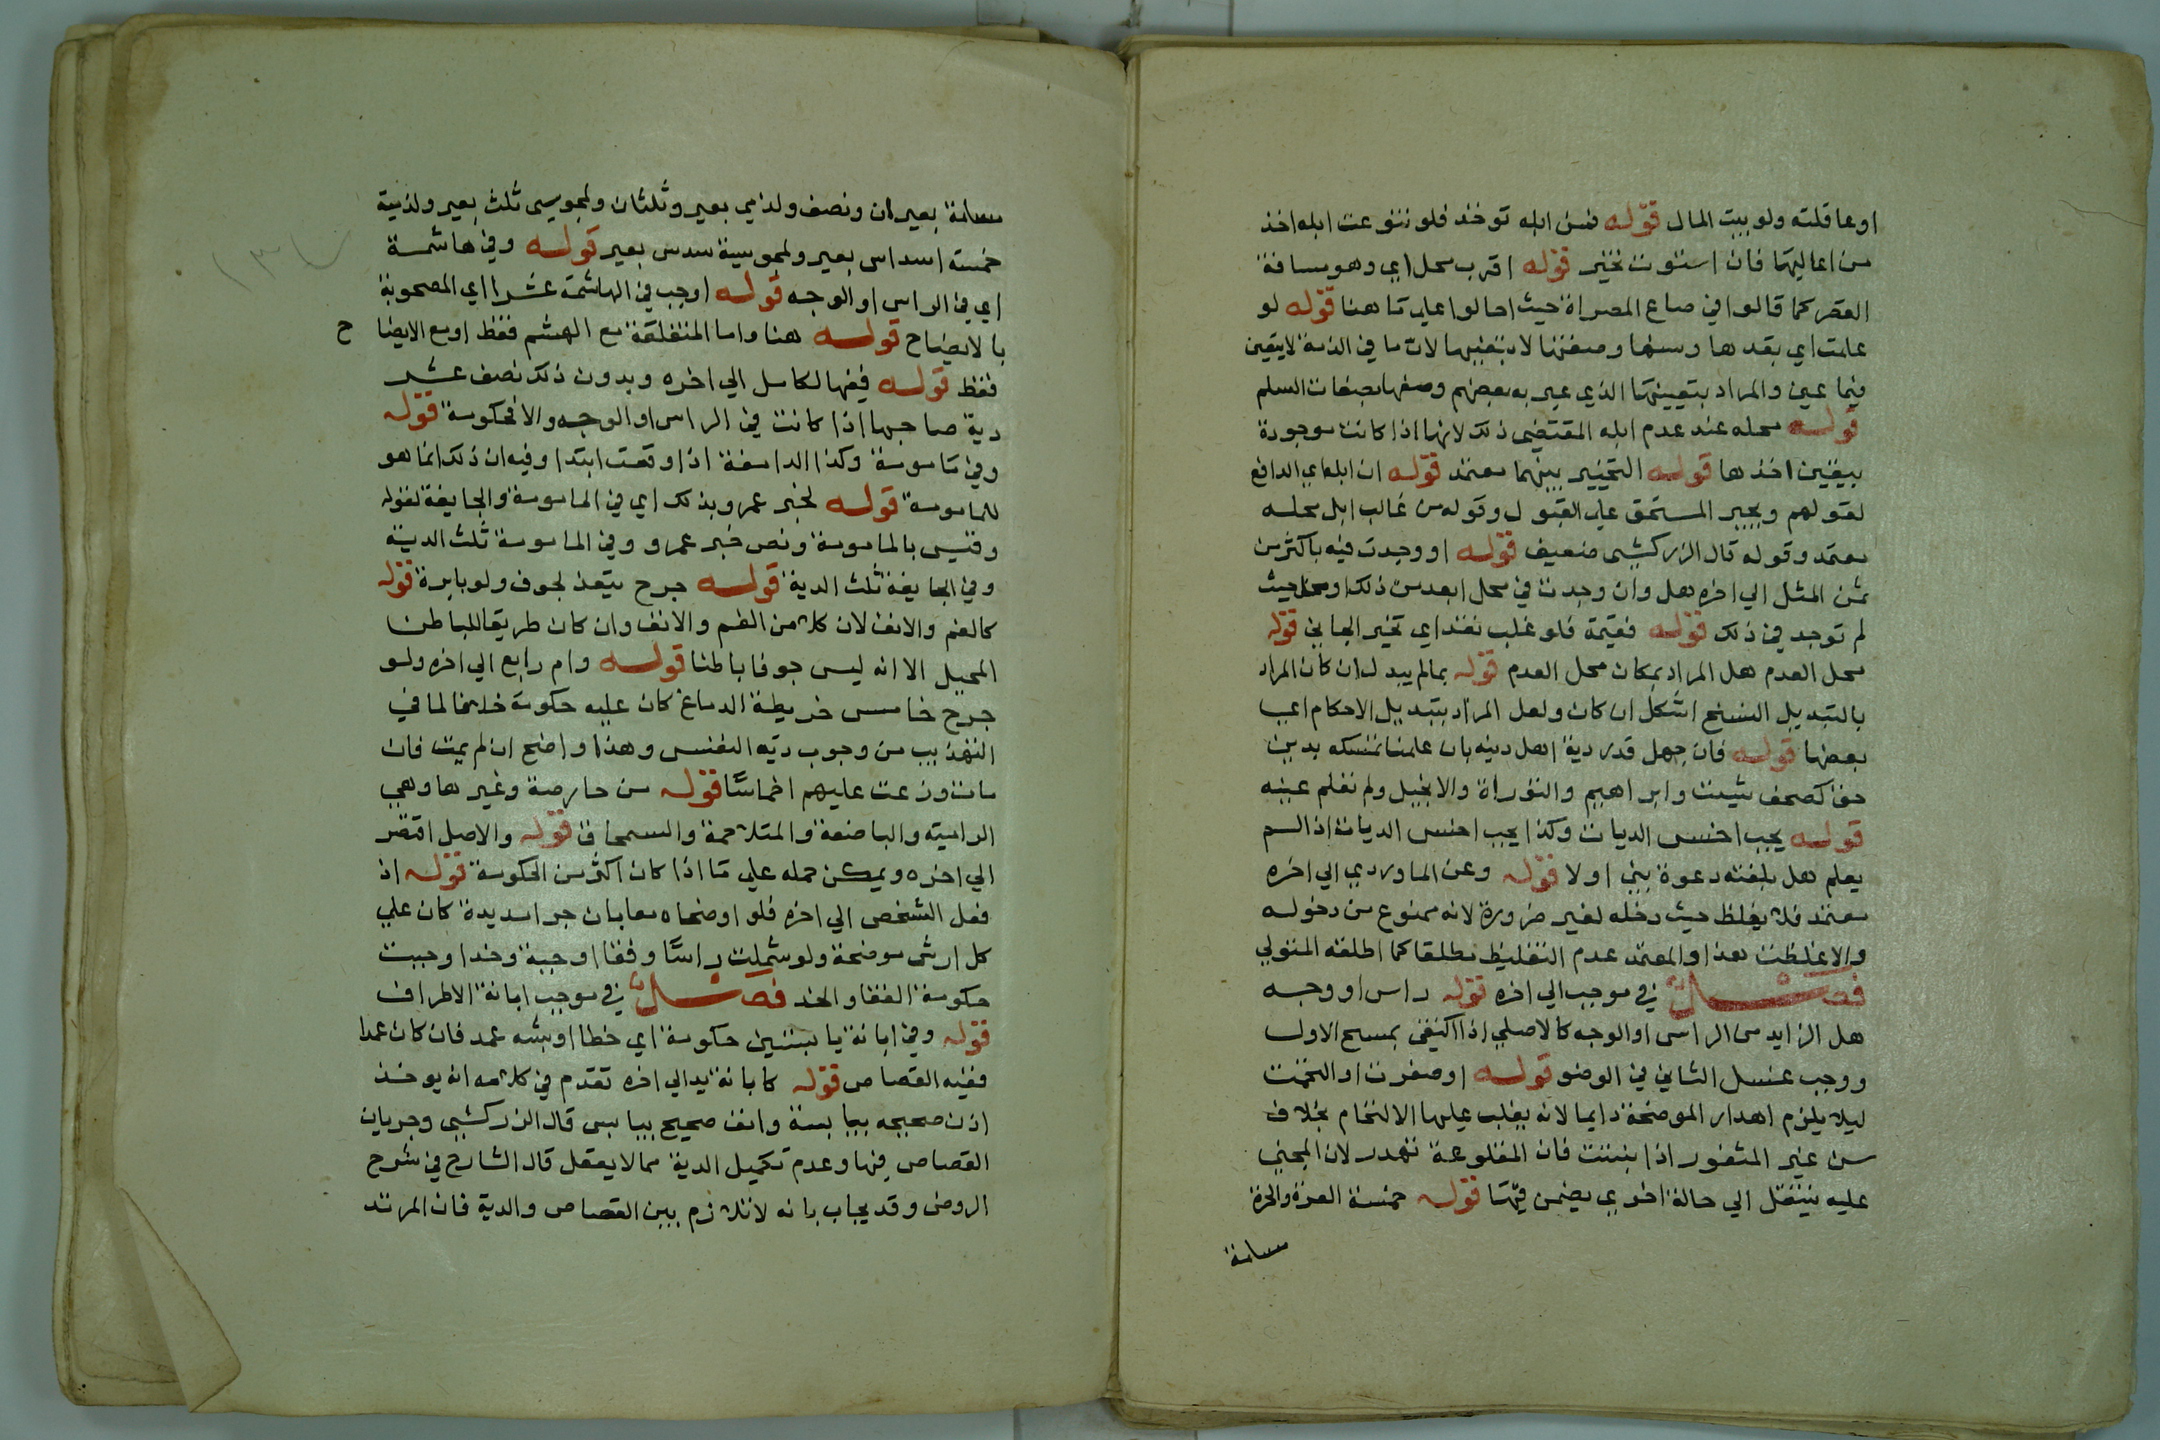 اوعاقلته ولو ببيت المال قوله فمن ابله توخذ فلو تنوعت ابله اخذ
من اعاليها فان استوت تخير قوله اقرب محل اي وهو مسافة
القصر كما قالوا في صاع المصراة حيث احالوا علي ما هنا قوله لو
علمت اي بقدها وسنها وصفتها لا بتعينها لان ما في الذمة لا يتعين
فيما عين والمراد بتعيينها الذي عبر به بعضهم وصفها بصفات السلم
قوله محله عند عدم ابله المقتضي ذلك لانها اذا كانت موجودة
يتعين اخذها قوله التخيير بينهما معتمد قوله ان ابله اي الدافع
لقولهم ويجبر المستحق علي القبول وقوله من غالب ابل محله
معتمد وقوله قال الزركشي ضعيف قوله او وجدت فيه باكثر من
ثمن المثل الي اخره هل وان وجدت في محل ابعد من ذلك او محل حيث
لم توجد في ذلك قوله فقيمة فلو غلب نقد اي تخير الجاني قوله
محل العدم هل المراد بمكان محل العدم قوله بما لم يبدل ان كان المراد
بالتبديل النسخ اشكل ان كان ولعل المراد بتبديل الاحكام اي
بعضها قوله فان جهل قدر دية اهل دينه بان علمنا تمسكه بدين
حق كصحف شيث وابراهيم والتوراة والانجيل ولم نعلم عينه
قوله يجب اخس الديات وكذا يجب اخس الديات اذا لم
يعلم هل بلغته دعوة نبي او لا قوله وعن الماوردي الي اخره
معتمد فلا يغلظ حيث دخله لغير ضرورة لانه ممنوع من دخوله
والا غلظت هذا والمعتمد عدم التغليظ مطلقا كما اطلقه المتولي
فصل في موجب الي اخره قوله راس او وجه
هل الزايد من الراس او الوجه كالاصلي اذا اكتفي بمسح الاول
ووجب غسل الثاني في الوضو قوله او صغرت او التحمت
ليلا يلزم اهدار الموضحة دايما لانه يغلب عليها الالتحام بخلاف
سن غير المثغور اذا نبتت فان المقلوعة تهدر لان المجني
عليه ينتقل الي حالة اخري يضمن فيها قوله خمسة الحرة والحرة
مسلمة
مسلمة بعيران ونصف ولذمي بعير وثلثان ولمجوسي ثلث بعير ولذمية
خمسة اسداس بعير ولمجوسية سدس بعير قوله وفي هاشمة
اي في الراس او الوجه قوله اوجب في الهاشمة عشرا اي المصحوبة
بالايضاح قوله هنا واما المنتقلة مع الهشم فقط او مع الايضا ح
فقط قوله ففيها لكامل الي اخره وبدون ذلك نصف عشر
دية صاحبها اذا كانت في الراس او الوجه والا فحكومة قوله
وفي مامومة وكذا الدامغة اذا وقعت ابتدا وفيه ان ذلك انما هو
للمامومة قوله لخبر عمرو بذلك اي في المامومة والجايفة لقوله
وقيس بالمامومة ونص خبر عمرو وفي المامومة ثلث الدية
وفي الجايفة ثلث الدية قوله جرح ينفذ لجوف ولو بابرة قوله
كالفم والانف لان كلا من الفم والانف وان كان طريقا للباطن
المحيل الا انه ليس جوفا باطنا قوله وام رابع الي اخره ولو
جرح خامس خريطة الدماغ كان عليه حكومة خلافا لما في
التهذيب من وجوب دية النفس وهذا واضح ان لم يمت فان
مات وزعت عليهم اخماسًا قوله من حارصة وغيرها وهي
الدامية والباضعة والمتلاحمة والسمحاق قوله والاصل اقتصر
الي اخره ويمكن حمله علي ما اذا كان اكثر من الحكومة قوله اذ
فعل الشخص الي اخره فلو اوضحاه معا بان جرا حديدة كان علي
كل ارش موضحة ولو شملت راسًا وقفا او جبهة وخدا وجبت
حكومة القفا والخد فصل في موجب ابانة الاطراف
قوله وفي ابانة يابستين حكومة اي خطا او شبه عمد فان كان عمدا
ففيه القصاص قوله كابانة يد الي اخره تقدم في كلامه انه يوخذ
اذن صحيحه بيابسة وانف صحيح بيابس قال الزركشي وجريان
القصاص فيها وعدم تكميل الدية مما لا يعقل قال الشارح في شرح
الروض وقد يجاب بانه لا تلازم بين القصاص والدية فان المرتد